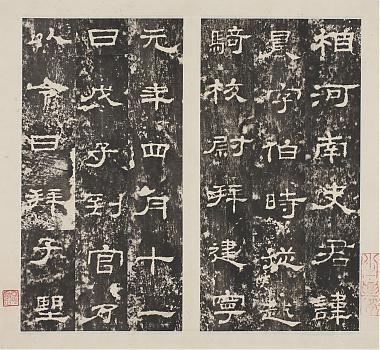 相河南史君諱
晨字伯時從越
騎校尉拜建寧
元年四月十一
日戊子到官乃
以令日拜子望